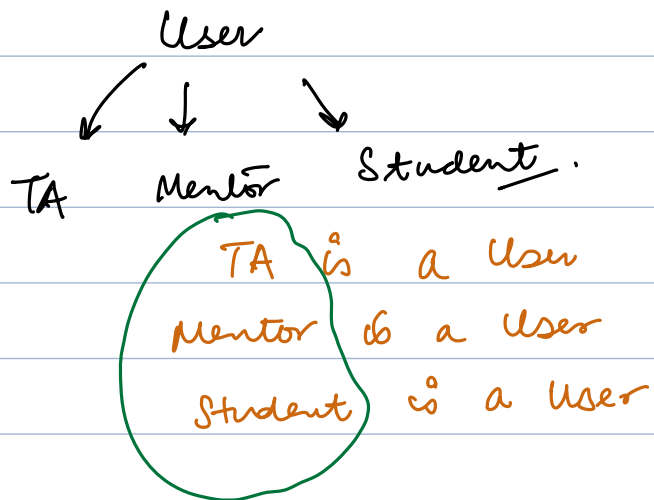 User
TA Mentor Student.
TA is a User
Mentor is a User
Student is a User